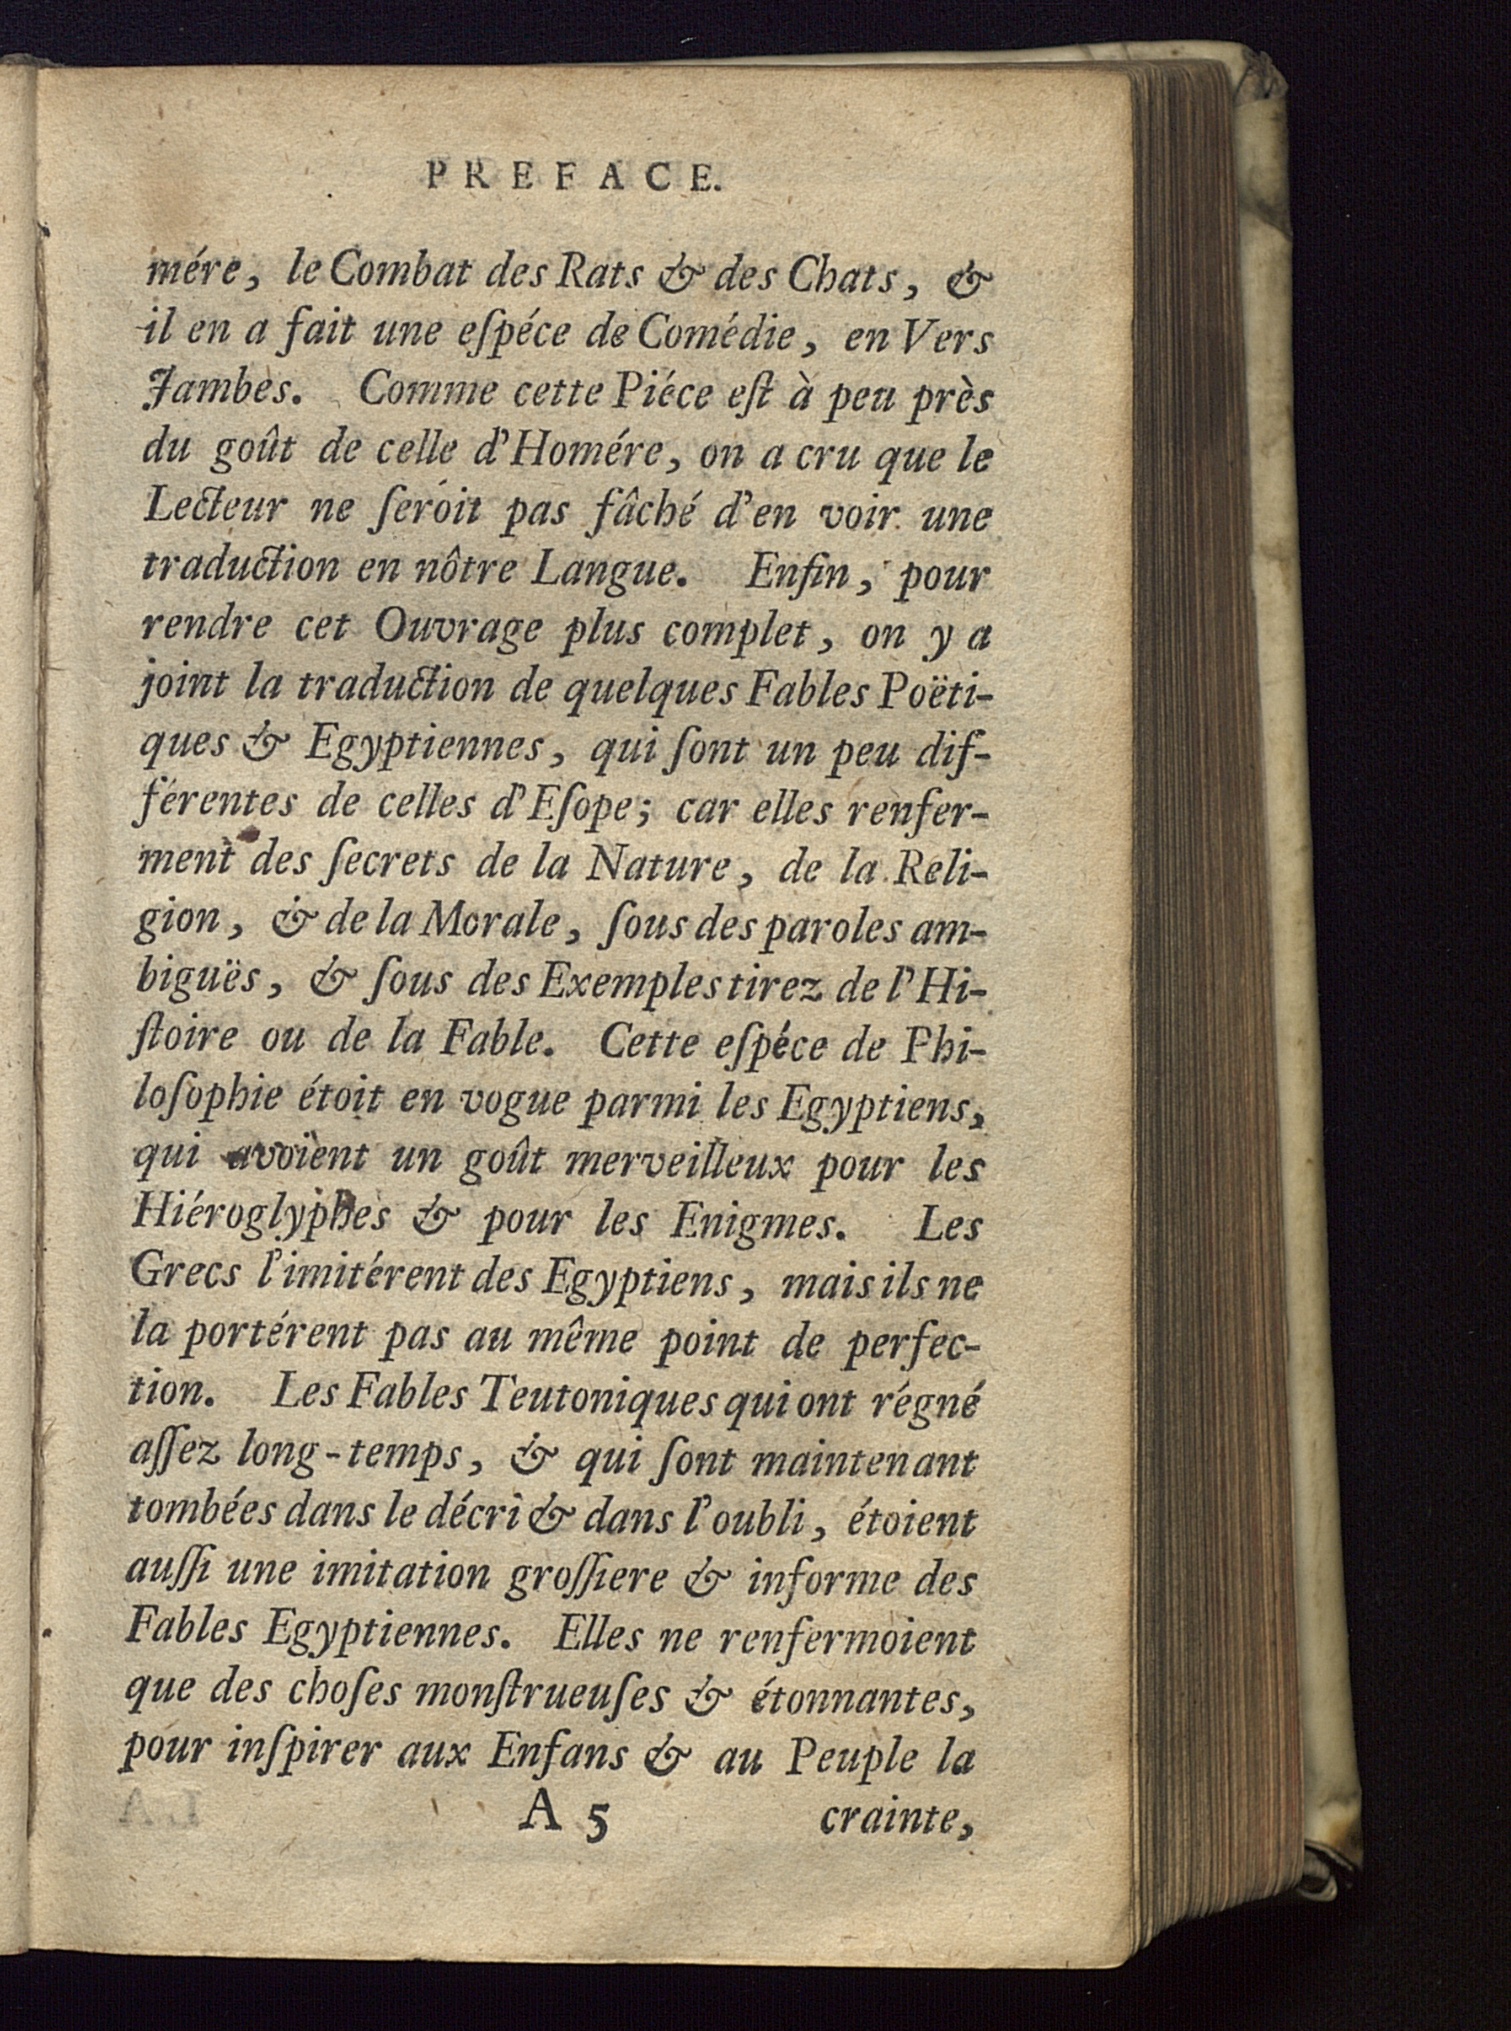 PREFACE.
mére, le Combat des Rats & des Chats, &
il en a fait une eſpéce de Comédie, en Vers
Jambes. Comme cette Piéce eſt à peu près
du goût de celle d'Homére, on a cru que le
Lecteur ne ſeroit pas fâché d'en voir une
traduction en nôtre Langue. Enfin, pour
rendre cet Ouvrage plus complet, on y a
joint la traduction de quelques Fables Poëti-
ques & Egyptiennes, qui ſont un peu dif-
férentes de celles d'Eſope; car elles renfer-
ment des ſecrets de la Nature, de la Reli-
gion, & de la Morale, ſous des paroles am-
biguës, & ſous des Exemples tirez de l'Hi-
ſtoire ou de la Fable. Cette eſpéce de Phi-
loſophie étoit en vogue parmi les Egyptiens,
qui avoient un goût merveilleux pour les
Hiéroglyphes & pour les Enigmes. Les
Grecs l'imitérent des Egyptiens, mais ils ne
la portérent pas au même point de perfec-
tion. Les Fables Teutoniques qui ont régné
aſſez long-temps, & qui ſont maintenant
tombées dans le décri & dans l'oubli, étoient
auſſi une imitation groſſiere & informe des
Fables Egyptiennes. Elles ne renfermoient
que des choſes monſtrueuſes & étonnantes,
pour inſpirer aux Enfans & au Peuple la
A 5 crainte,